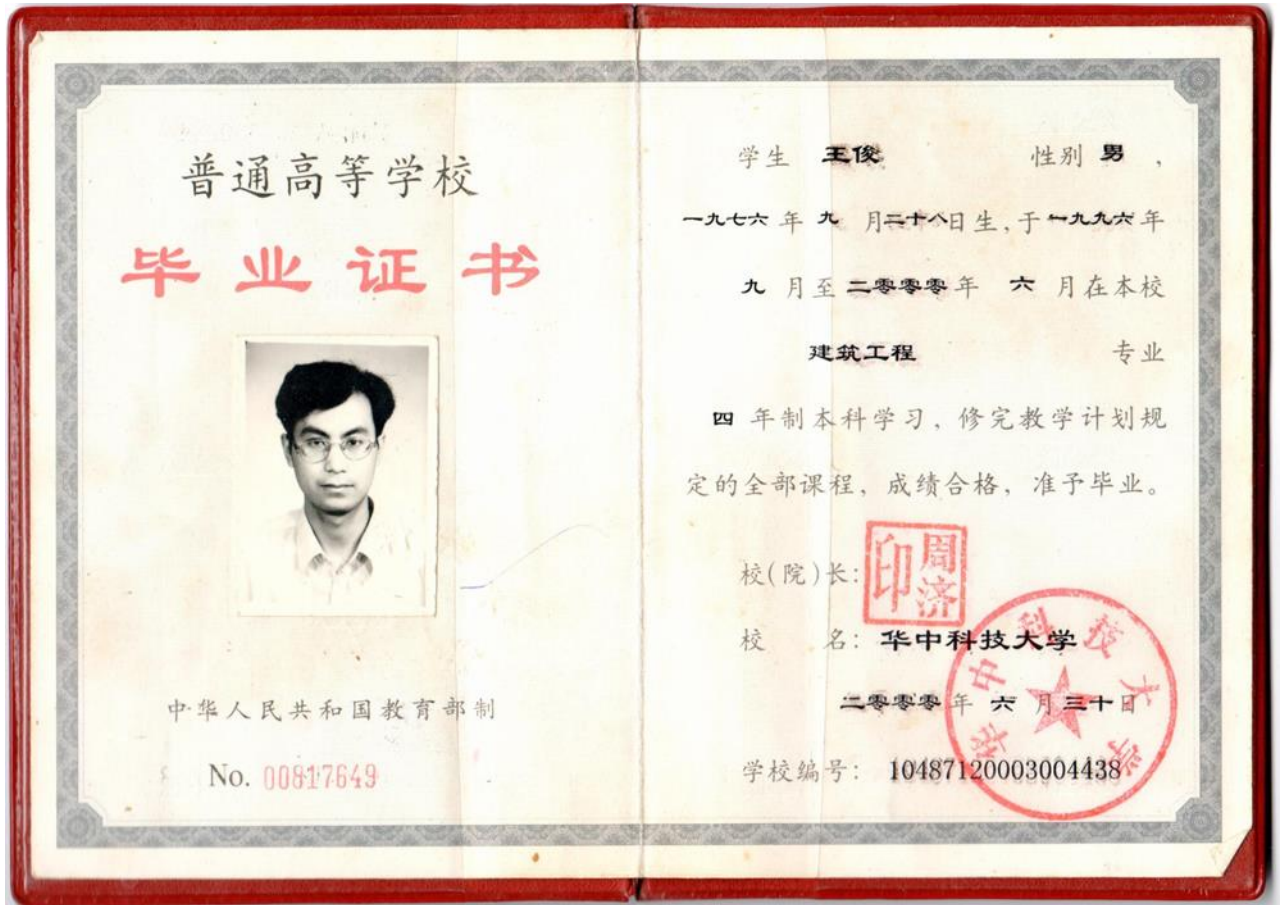 普通高等学校
毕业证书
中华人民共和国教育部制
No. 00817649
学生 王俊 性别 男 ，
一九七六年 九 月二十八日生，于一九九六年
九 月至二零零零年 六 月在本校
建筑工程 专业
四 年制本科学习，修完教学计划规
定的全部课程，成绩合格，准予毕业。
校(院)长：
周济印
校 名：华中科技大学
二零零零年 六 月三十日
华中科技大学
学校编号：10487120003004438